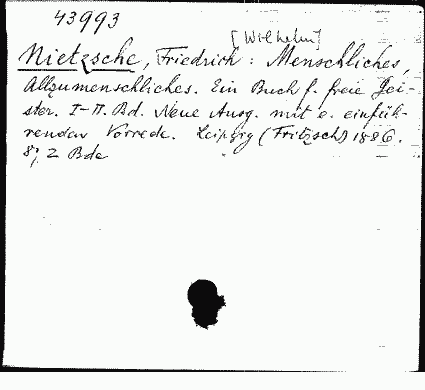 43993
[Wilhelm]
Nietzsche, Friedrich: Menschliches,
Allzumenschliches. Ein Buch f. freie Gei-
ster. I-II. Bd. Neue Ausg. mit e. einfüh-
renden Vorrede. Leipzig (Fritzsch) 1886.
8°, 2 Bde